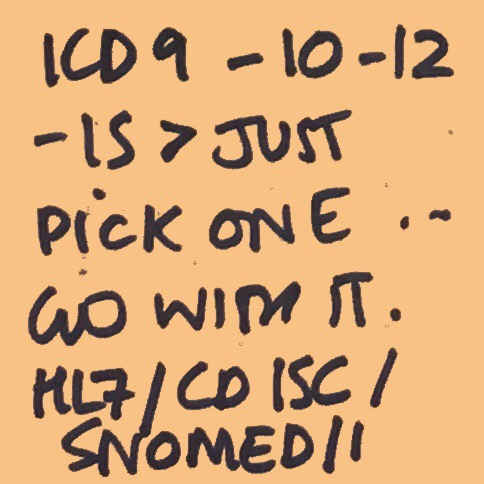 ICD9 -10-12
-15 > JUST
PICK ONE .-
GO WITH IT.
HL7/CDISC/
SNOMED/1